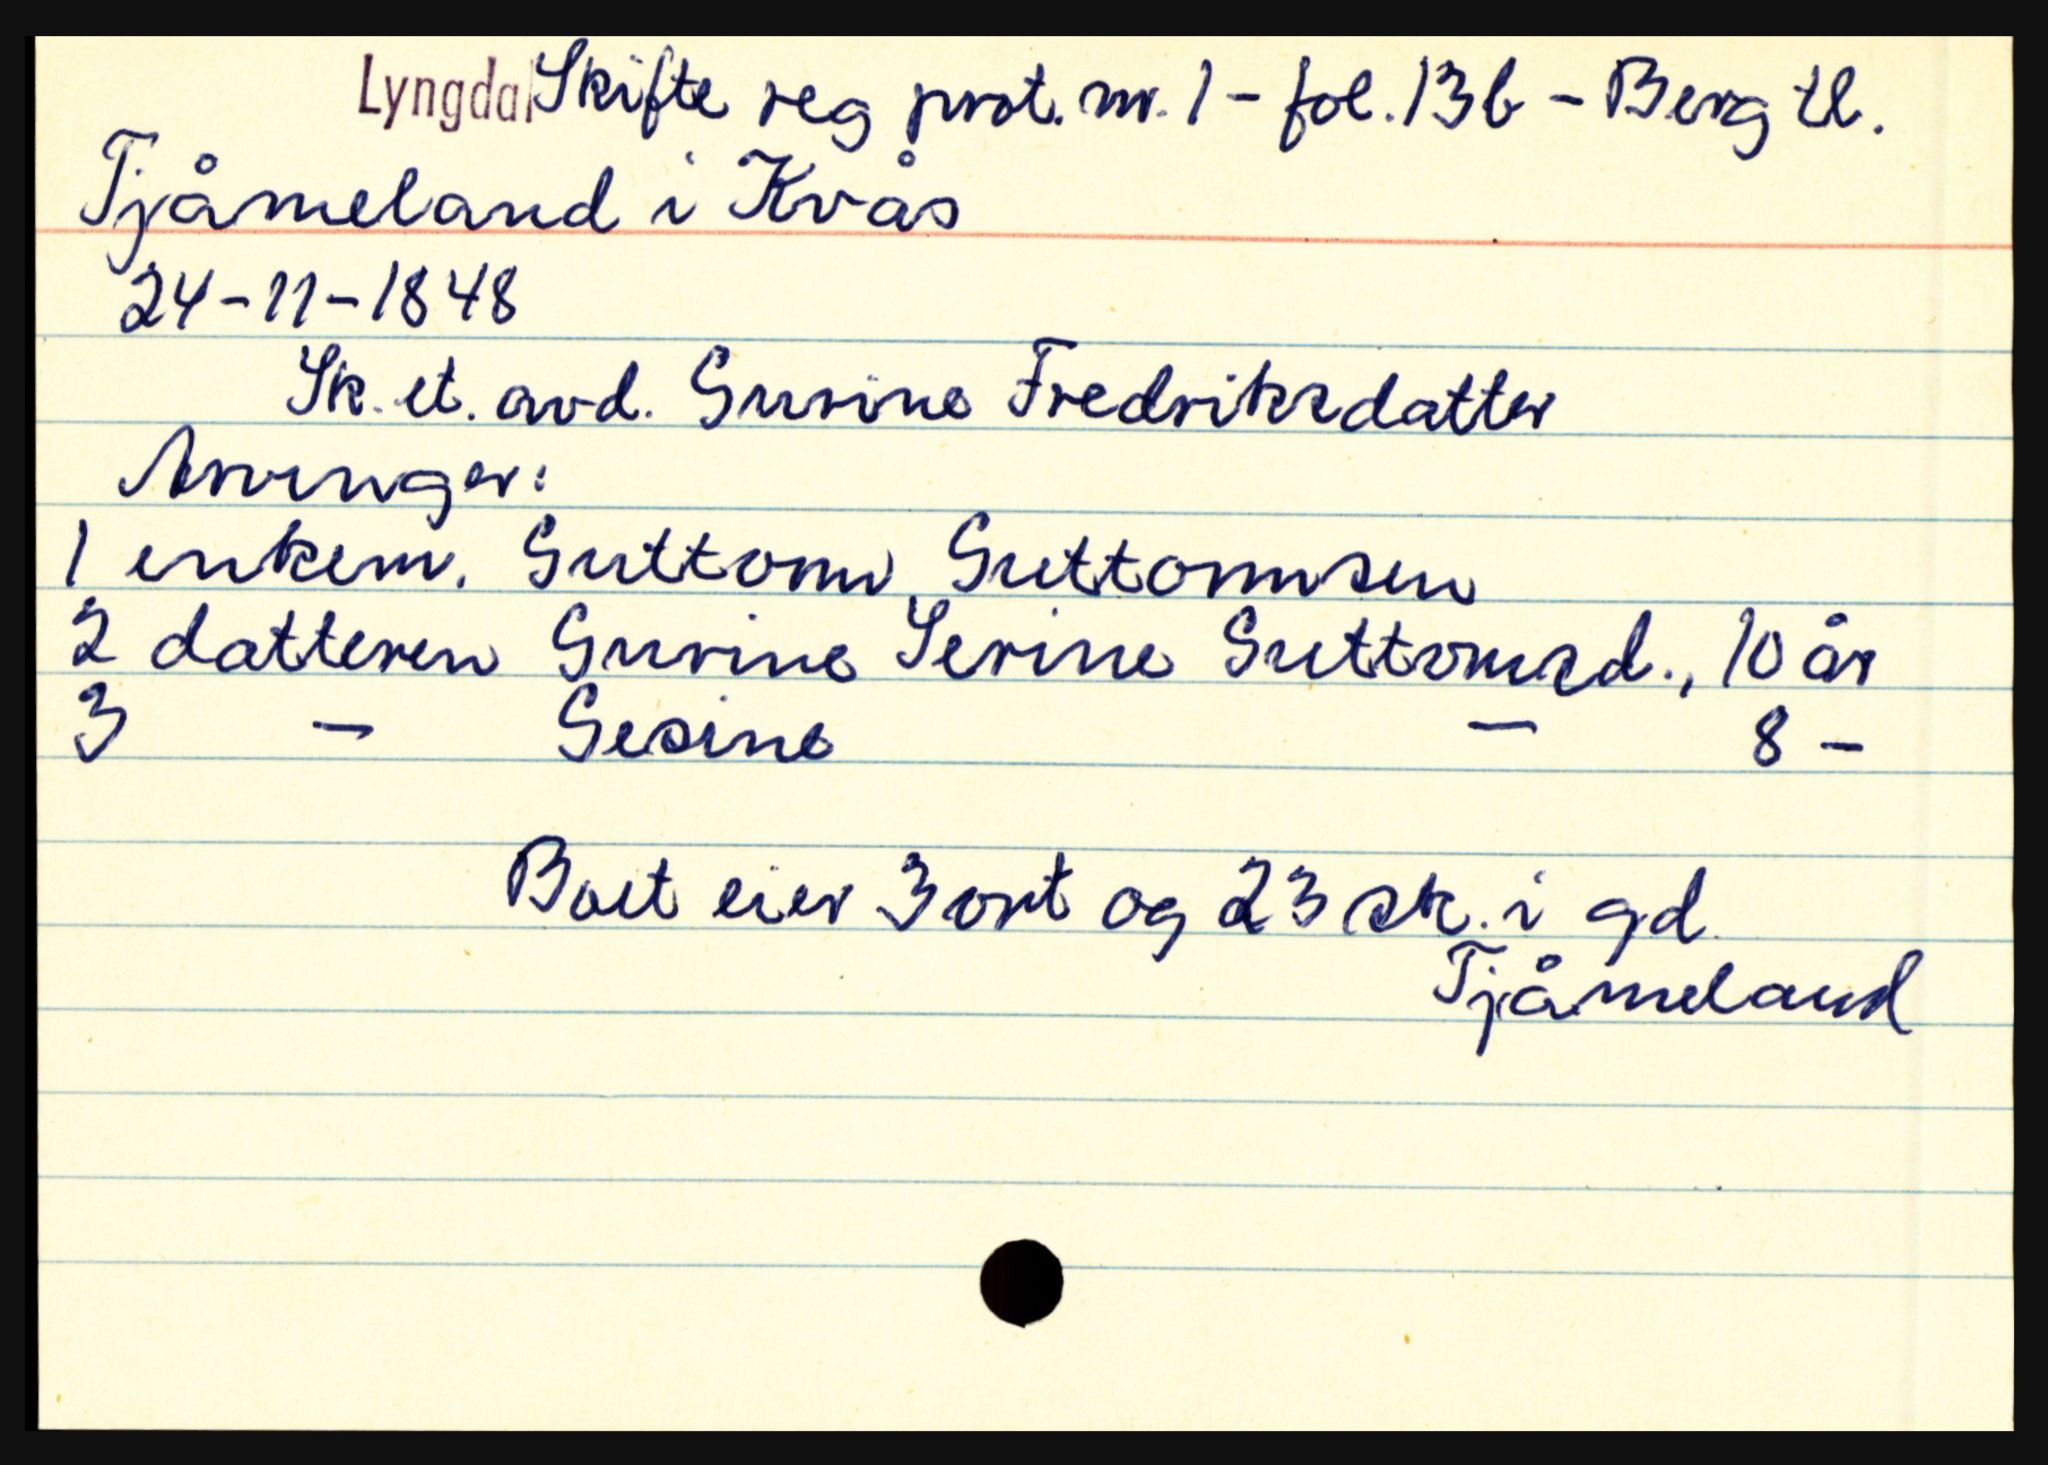 Lyngdal Skifte reg prot. nr. 1 - fol. 13b - Berg tl.
Tjåmeland i Kvås
24-11-1848
Sk. et. avd. Gurine Fredriksdatter
Arvinger:
1 enkem. Guttorm Guttormsen
2 datteren Gurine Serine Guttormsd., 10 år
3 - Gesine - 8 -
Boet eier 3 ort og 23 sk. i gd.
Tjåmeland